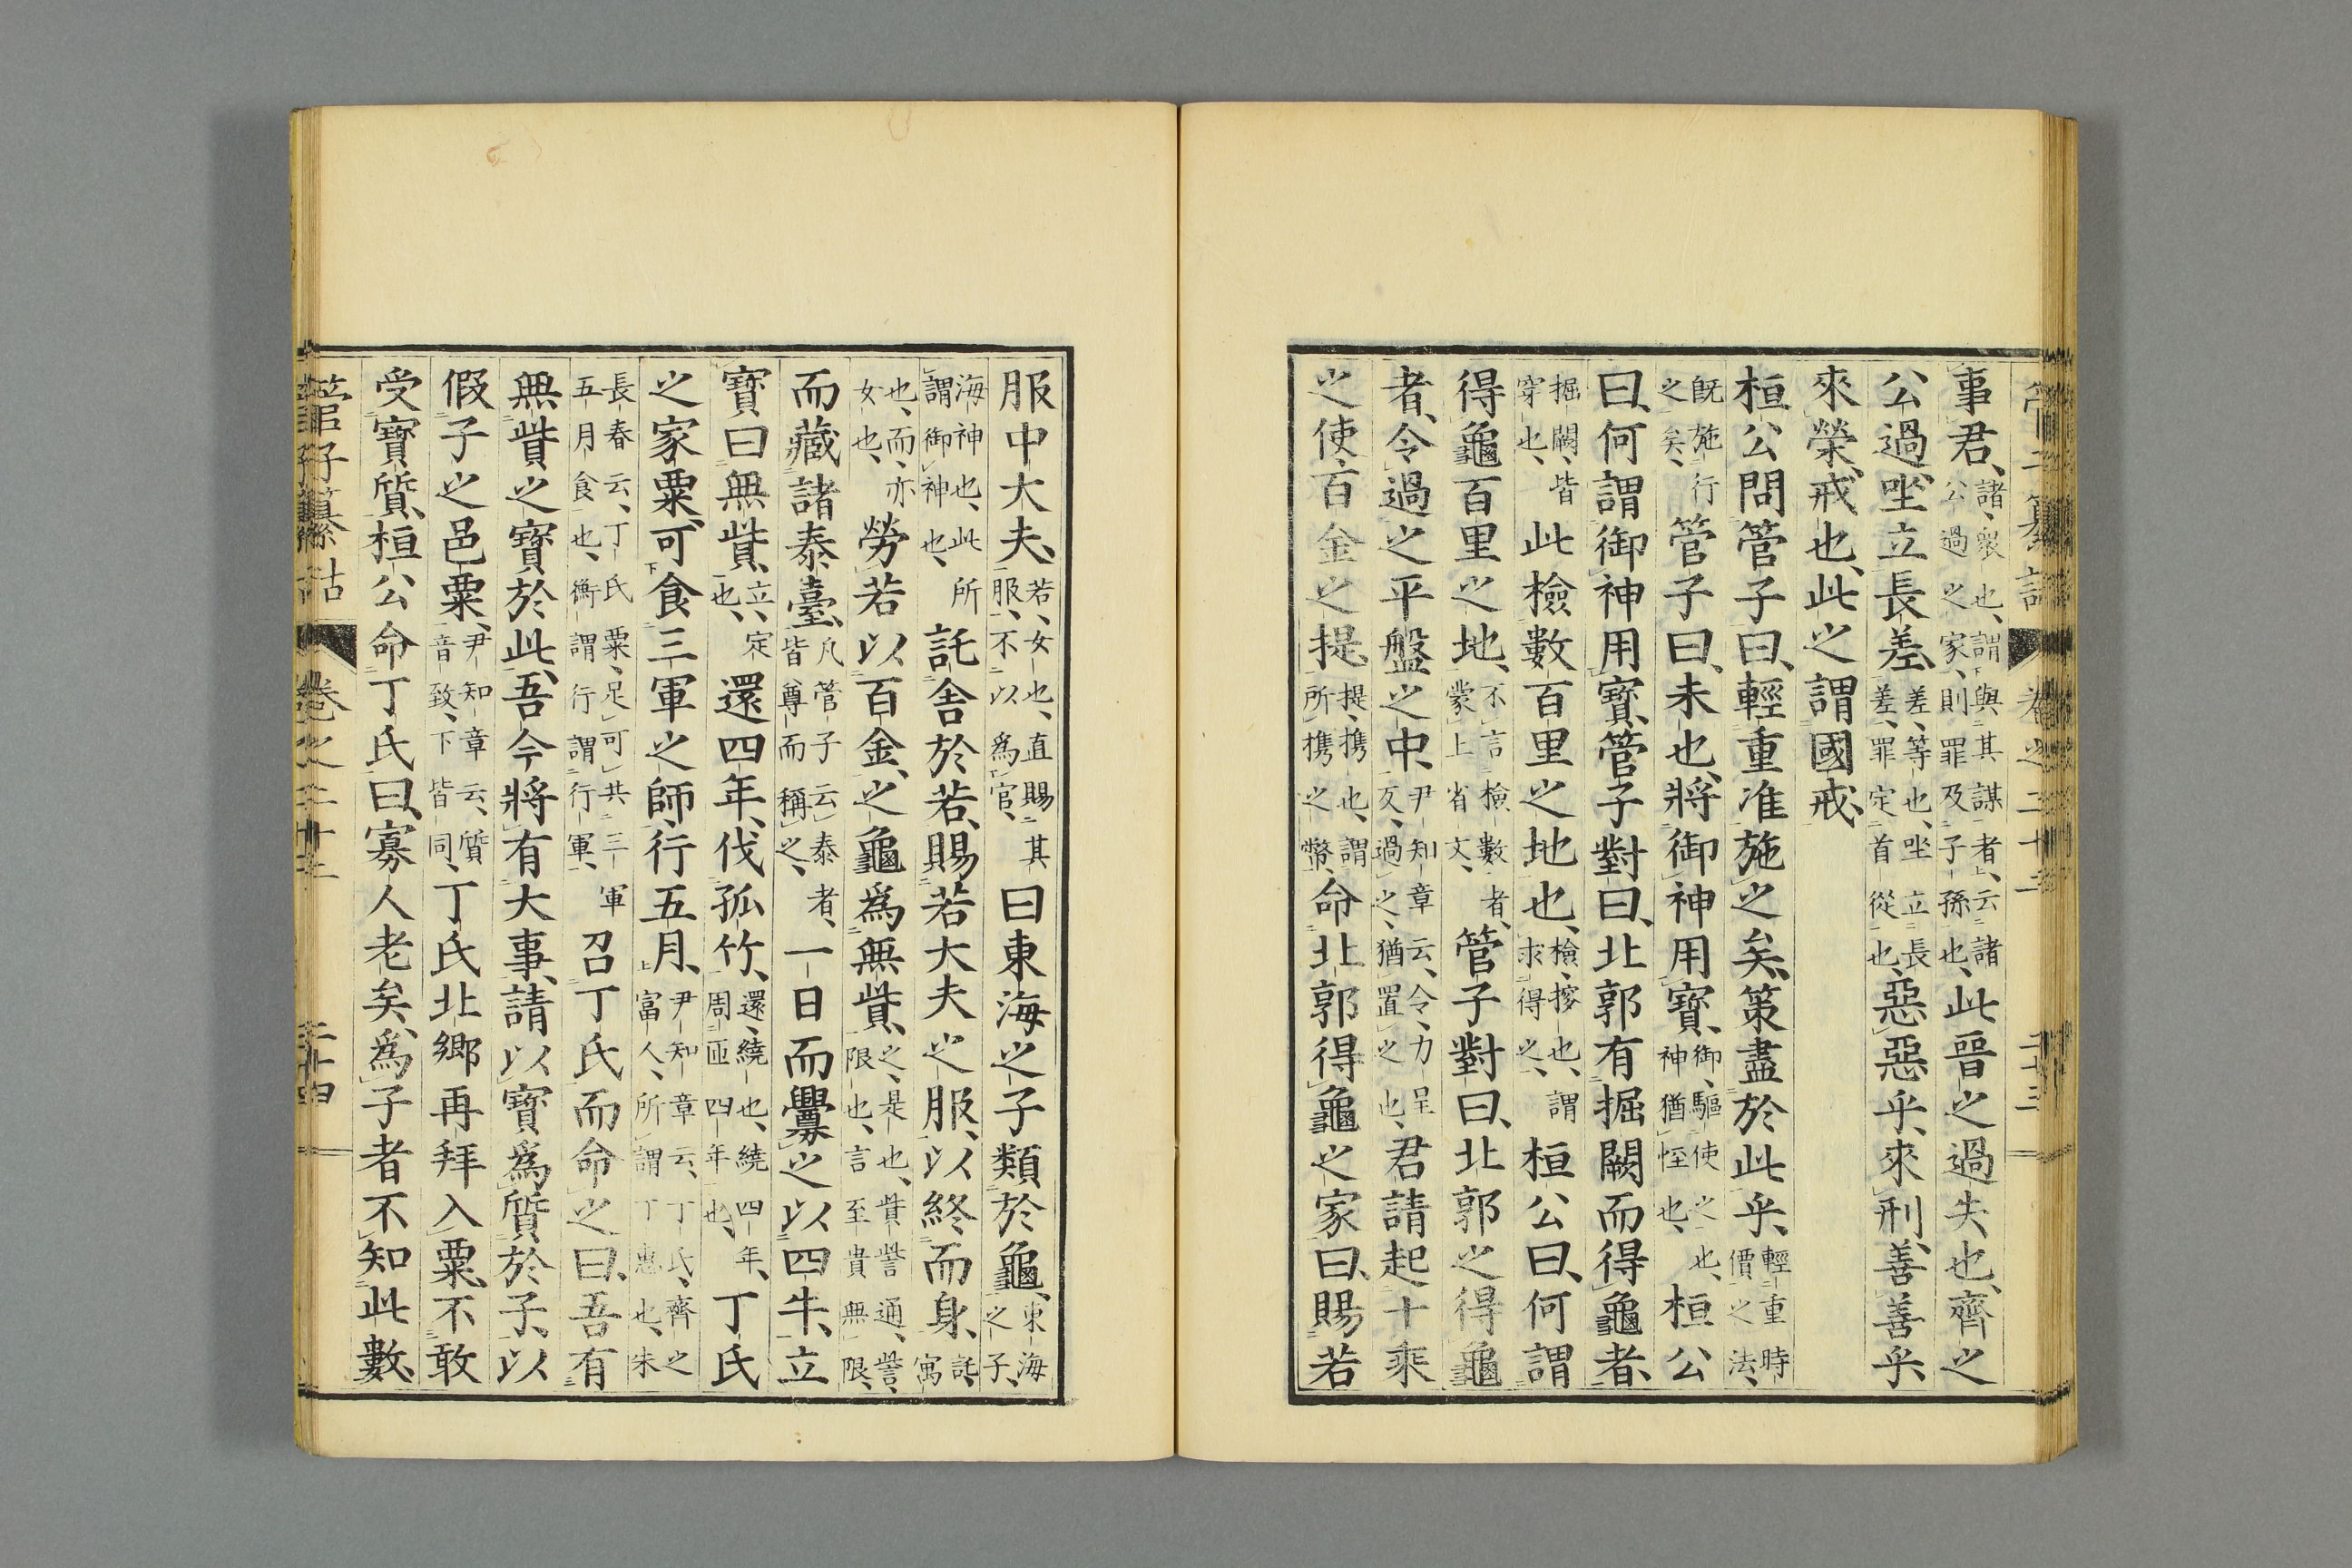 事君、諸、衆也、謂與其謀者、云諸公過之家、則罪及子孫也、此晉之過失也、齊之
公過、坐立長差、差、等也、坐立長差、罪定首從也、惡惡乎、來刑、善善乎、
來榮、戒也、此之謂國戒、
桓公問管子曰、輕重准施之矣、策盡於此乎、輕重時價之法、
既施行之矣、管子曰、未也、將御神用寶、御、驅使之也、神猶恠也、桓公
曰、何謂御神用寶、管子對曰、北郭有掘闕而得龜者、
掘闕、皆穿也、此檢數百里之地也、檢、搜也、謂求得之、桓公曰、何謂
得龜百里之地、不言檢數者、蒙上省文、管子對曰、北郭之得龜
者、令過之平盤之中、尹知章云、令、力呈反、過之、猶置之也、君請起十乘
之使、百金之提、提、携也、謂所携之幣、命北郭得龜之家曰、賜若
服中大夫、若、女也、直賜其服、不以爲官、曰東海之子類於龜、東海之子、
海神也、此謂御神也、所託舍於若、賜若大夫之服、以終而身、託、寓
也、而、亦女也、勞若以百金、之龜爲無貲、之、是也、貲訾通、訾、限也、言至貴無限、
而藏諸泰臺、凡管子云泰者、皆尊而稱之、一日而釁之以四牛、立
寶曰無貲、立、定也、還四年、伐孤竹、還、繞也、繞四年、周匝四年也、丁氏
之家粟、可食三軍之師、行五月、尹知章云、丁氏、齊之富人、所謂丁惠也、朱
長春云、丁氏粟、足可共三軍五月食也、衡謂行謂行軍、召丁氏而命之曰、吾有
無貲之寶於此、吾今將有大事、請以寶爲質於子、以
假子之邑粟、尹知章云、質音致、下皆同、丁氏北鄉再拜入粟、不敢
受寶質、桓公命丁氏曰、寡人老矣、爲子者不知此數、
管子纂詁　卷之二十二　二十四